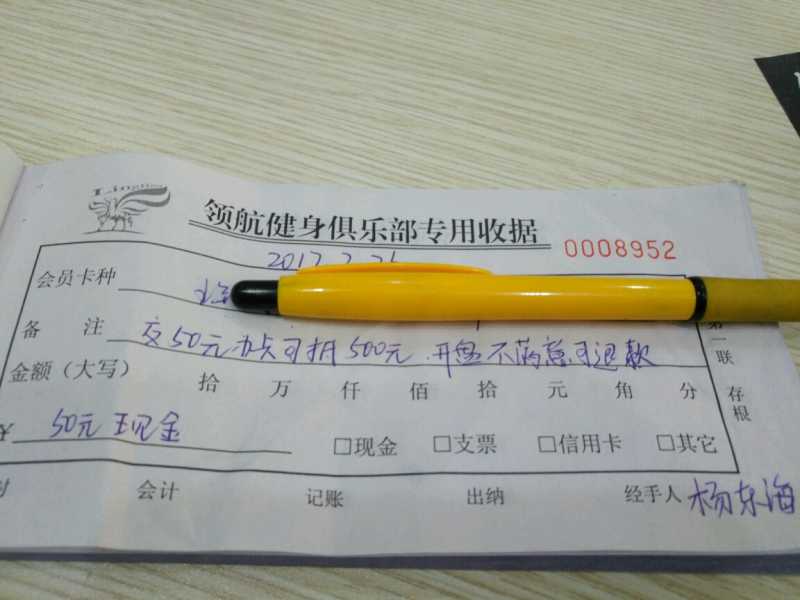 领航健身俱乐部专用收据
0008952
2017
会员卡种
备 注 交50元办卡可抵500元.开盘不满意可退款
金额（大写） 拾 万 仟 佰 拾 元 角 分
50元 现金 □现金 □支票 □信用卡 □其它
第一联 存根
会计 记账 出纳 经手人 杨东海